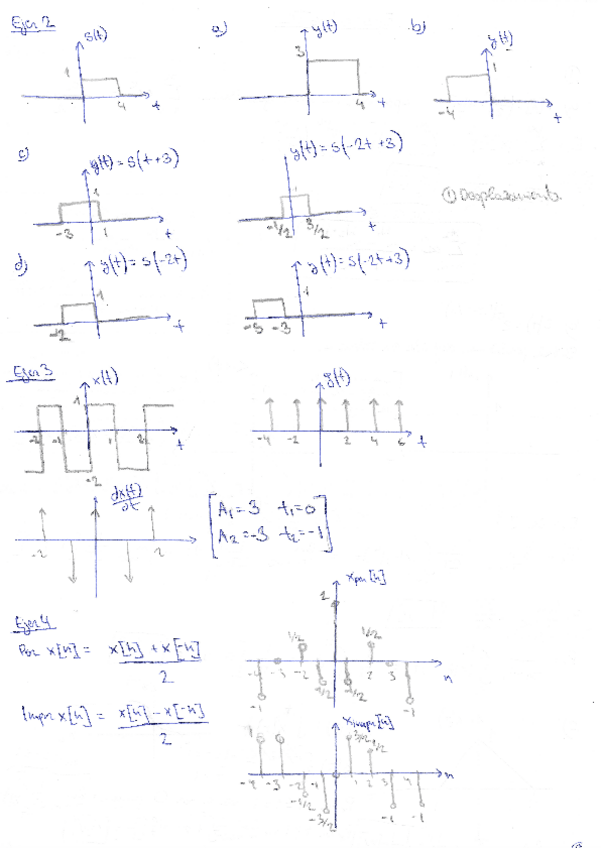 Ejer 2
s(t)
1
4
t
a)
y(t)
3
4
t
b)
y(t)
1
-4
t
c)
y(t)=s(t+3)
1
-3
1
t
y(t)=s(-2t+3)
1
-1/2
3/2
t
① Desplazamiento
d)
y(t)=s(-2t)
1
-2
t
y(t)=s(-2t+3)
1
-5
-3
t
Ejer 3
x(t)
1
-2
-1
1
2
t
-2
g(t)
-4
-2
2
4
6
t
dx(t)
dt
-2
2
A₁=3 t₁=0
A₂=-3 t₂=-1
Ejer 4
Par x[n] = x[n] + x[-n]
2
Impar x[n] = x[n] - x[-n]
2
xpar[n]
2
1/2
1/2
-4 -3 -2 2 3
n
-1/2
-1/2
-1
-1
ximpar[n]
1
3/2
1/2
-4 -3 -2 -1 1 2 3 4
n
-1/2
-3/2
-1
-1